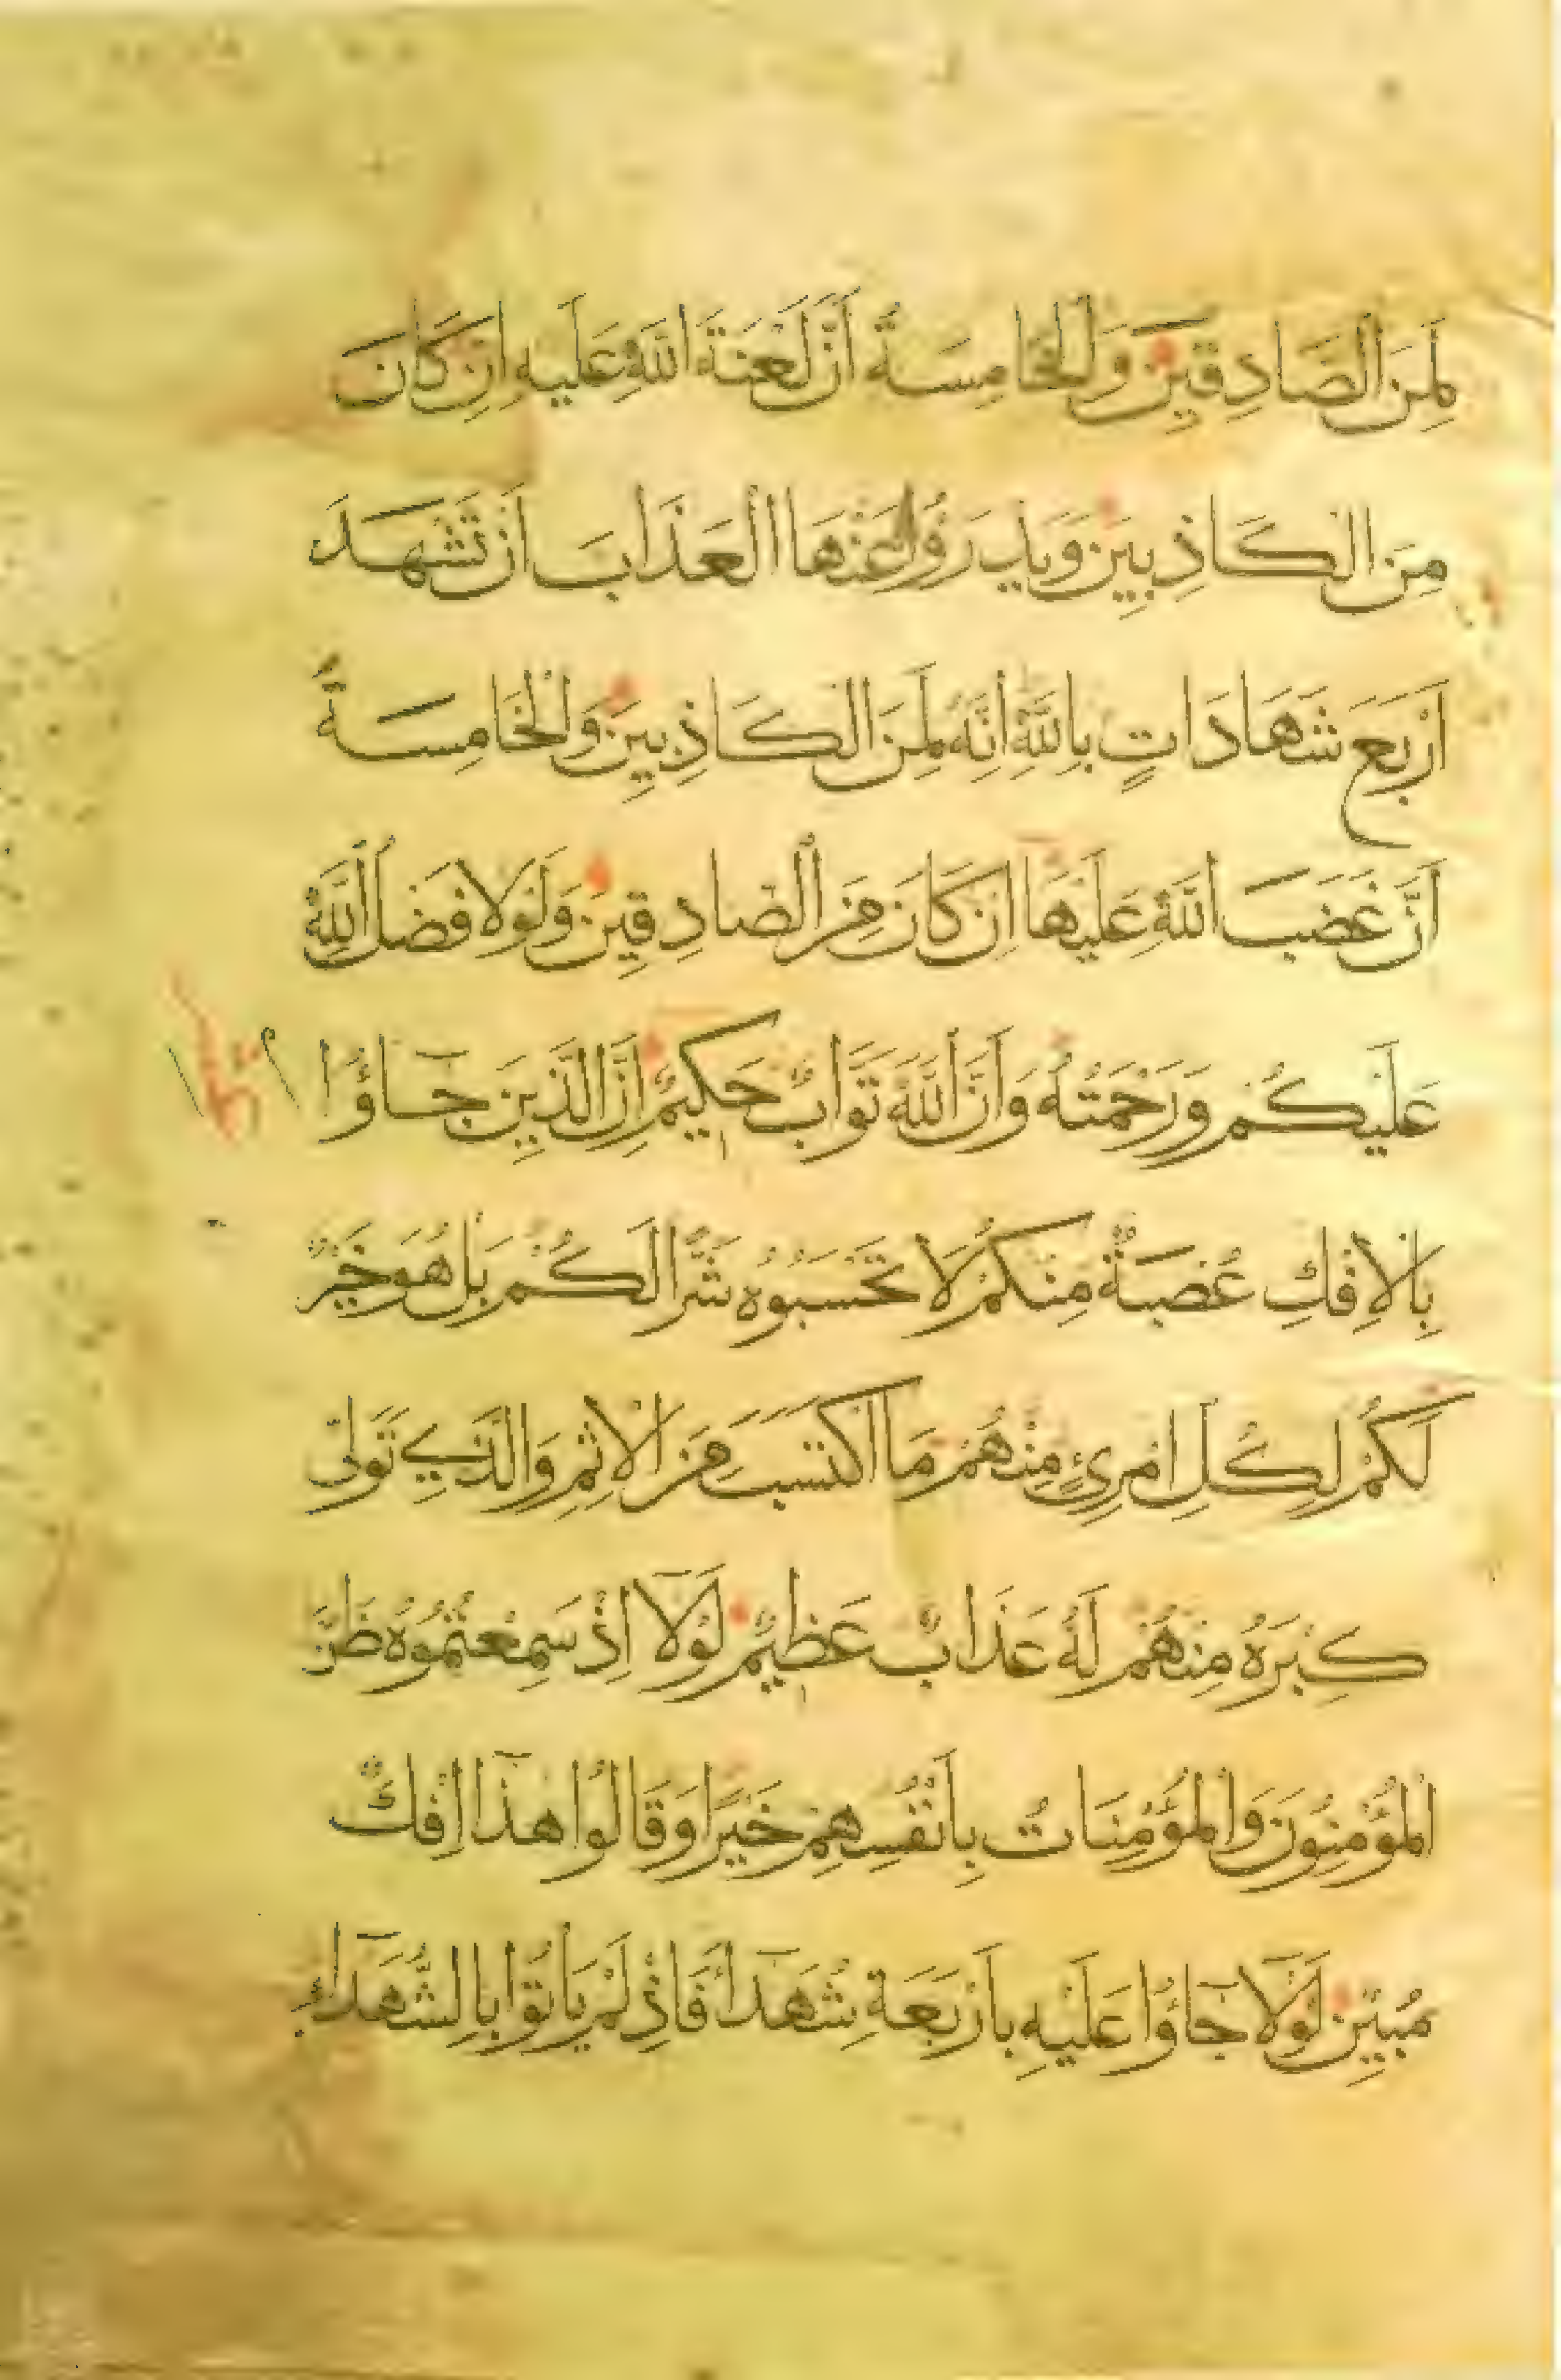 لَمِنَ الصَّادِقِينَ وَالْخَامِسَةُ أَنَّ لَعْنَةَ اللَّهِ عَلَيْهِ إِنْ كَانَ
مِنَ الْكَاذِبِينَ وَيَدْرَؤُا عَنْهَا الْعَذَابَ أَنْ تَشْهَدَ
أَرْبَعَ شَهَادَاتٍ بِاللَّهِ إِنَّهُ لَمِنَ الْكَاذِبِينَ وَالْخَامِسَةَ
أَنَّ غَضَبَ اللَّهِ عَلَيْهَا إِنْ كَانَ مِنَ الصَّادِقِينَ وَلَوْلَا فَضْلُ اللَّهِ
عَلَيْكُمْ وَرَحْمَتُهُ وَأَنَّ اللَّهَ تَوَّابٌ حَكِيمٌ إِنَّ الَّذِينَ جَاؤُا
بِالْإِفْكِ عُصْبَةٌ مِنْكُمْ لَا تَحْسَبُوهُ شَرًّا لَكُمْ بَلْ هُوَ خَيْرٌ
لَكُمْ لِكُلِّ امْرِئٍ مِنْهُمْ مَا اكْتَسَبَ مِنَ الْإِثْمِ وَالَّذِي تَوَلَّى
كِبْرَهُ مِنْهُمْ لَهُ عَذَابٌ عَظِيمٌ لَوْلَا إِذْ سَمِعْتُمُوهُ ظَنَّ
الْمُؤْمِنُونَ وَالْمُؤْمِنَاتُ بِأَنْفُسِهِمْ خَيْرًا وَقَالُوا هَذَا إِفْكٌ
مُبِينٌ لَوْلَا جَاؤُا عَلَيْهِ بِأَرْبَعَةِ شُهَدَاءَ فَإِذْ لَمْ يَأْتُوا بِالشُّهَدَاءِ